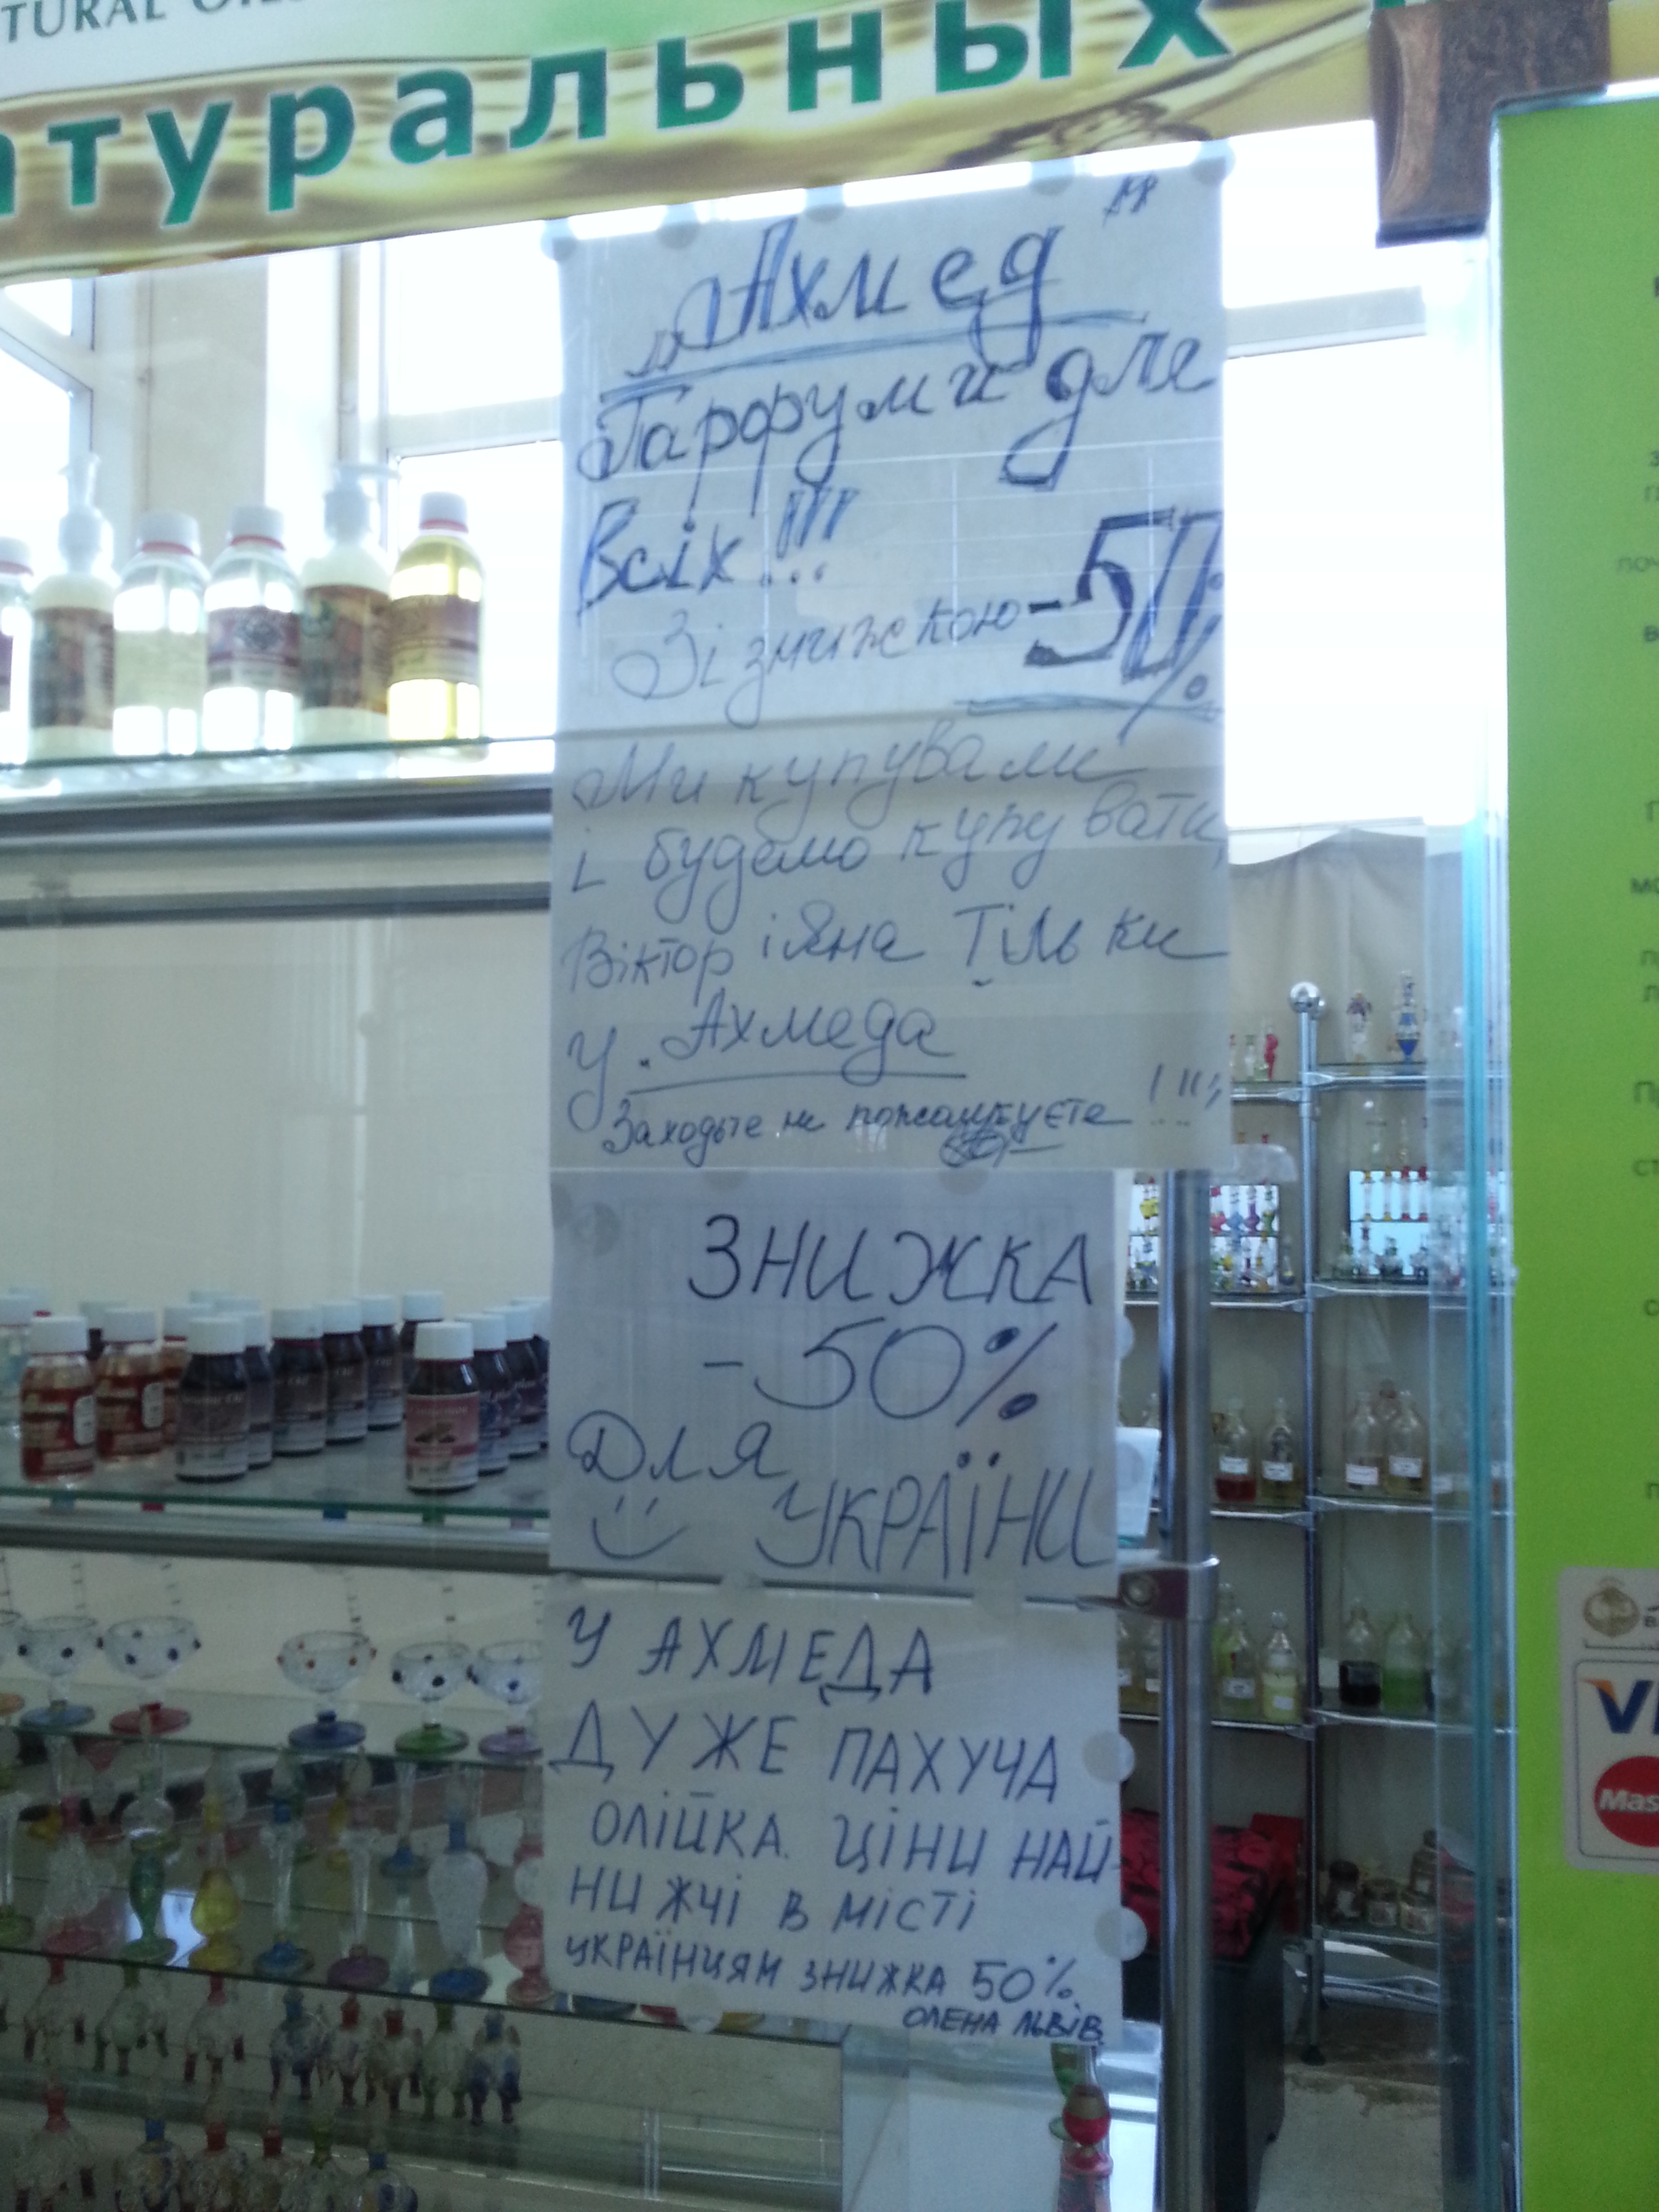 TURAL
туральных
„Ахмед"
Парфуми для
Всіх!!!
Зі знижкою -50%
Ми купували
і будемо купувати,
Вікторіяна Тільки
у Ахмеда
Заходьте не пожалкуєте !!!
ЗНИЖКА
-50%
Для
УКРАЇНИ
У АХМЕДА
ДУЖЕ ПАХУЧА
ОЛІЙКА. ЦІНИ НАЙ-
НИЖЧІ В МІСТІ
УКРАЇНЦЯМ ЗНИЖКА 50%.
ОЛЕНА ЛЬВІВ.
VI
Mas